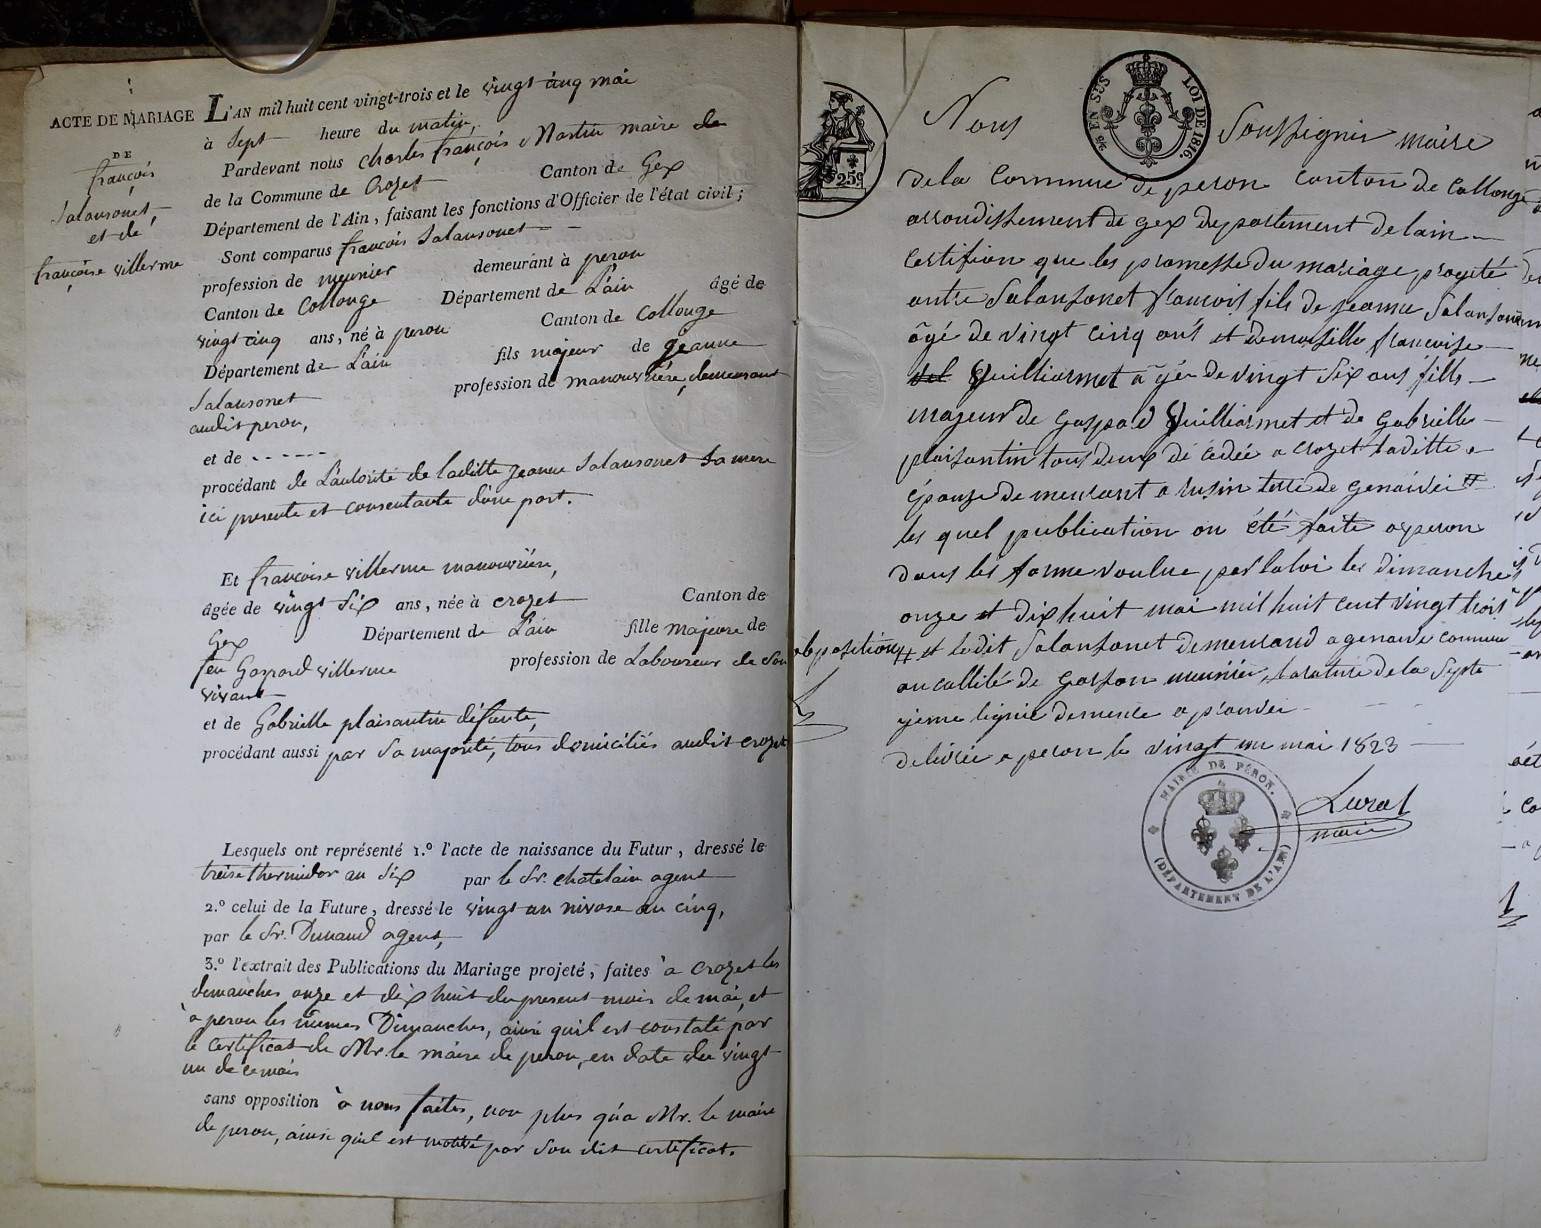 ACTE DE MARIAGE
DE
françois
Salansonet
et de
françoise villerme
L'AN mil huit cent vingt-trois et le vingt cinq mai
à Sept heure du matin,
Pardevant nous Charles françois Martin maire de
de la Commune de Crozet Canton de Gex
Département de l'Ain, faisant les fonctions d'Officier de l'état civil;
Sont comparus françois Salansonet
profession de meunier demeurant à peron
Canton de Collonge Département de L'ain âgé de
vingt cinq ans, né à peron Canton de Collonge
Département de L'ain fils majeur de Jeanne
Salansonet profession de manouvrière, demeurant
audit peron,
et de - - - - - -
procédant de L'autorité de laditte Jeanne Salansonet Sa mere
ici presente et consentante d'une part.
Et françoise villerme manouvrière,
âgée de vingt Six ans, née à crozet Canton de
Gex Département de L'ain fille majeure de
feu Gaspard villerme profession de Laboureur de Son
vivant
et de Gabrielle plaisantin défunte,
procédant aussi par Sa majorité, tous domiciliés audit crozet
Lesquels ont représenté 1.º l'acte de naissance du Futur, dressé le
treize thermidor an Six par le Sr. chatelain agent
2.º celui de la Future, dressé le vingt un nivose an cinq,
par le Sr. Dunand agent,
3.º l'extrait des Publications du Mariage projeté, faites à crozet les
dimanches onze et dix huit du present mois de mai, et
à peron les mêmes Dimanches, ainsi qu'il est constaté par
le certificat de Mr. le maire de peron, en date du vingt
un de ce mois
sans opposition à nous faites, non plus qu'a Mr. le maire
de peron, ainsi qu'il est par Son dit certificat.
25c
¼ EN SUS LOI DE 1816.
Nous Soussigner maire
de la Commune de peron Canton de Collonge
arrondissement de gex departement de lain
Certifion que les promesse du mariage progité
entre Salansonet francois fils de jeanne Salansonet
âgé de vingt cinq ans et demoiselle francoise
Guilliermet âgée de vingt Six ans fille
majeur de Gaspard Guilliermet et de Gabrielle
plaisantin tous deux décédée a crozet laditte
épouze demeurant a terre de
les quel publication on été faite a peron
dans les forme voulue par la loi les dimanche
onze et dix huit mai mil huit cent vingt trois
opposition # et ledit Salansonet demeurand a comme
en callité de garson meunier, la rature de la Septe
yieme lignie
delivrée a peron le vingt un mai 1823
maire
MAIRIE DE PÉRON.
(DÉPARTEMENT DE L'AIN)